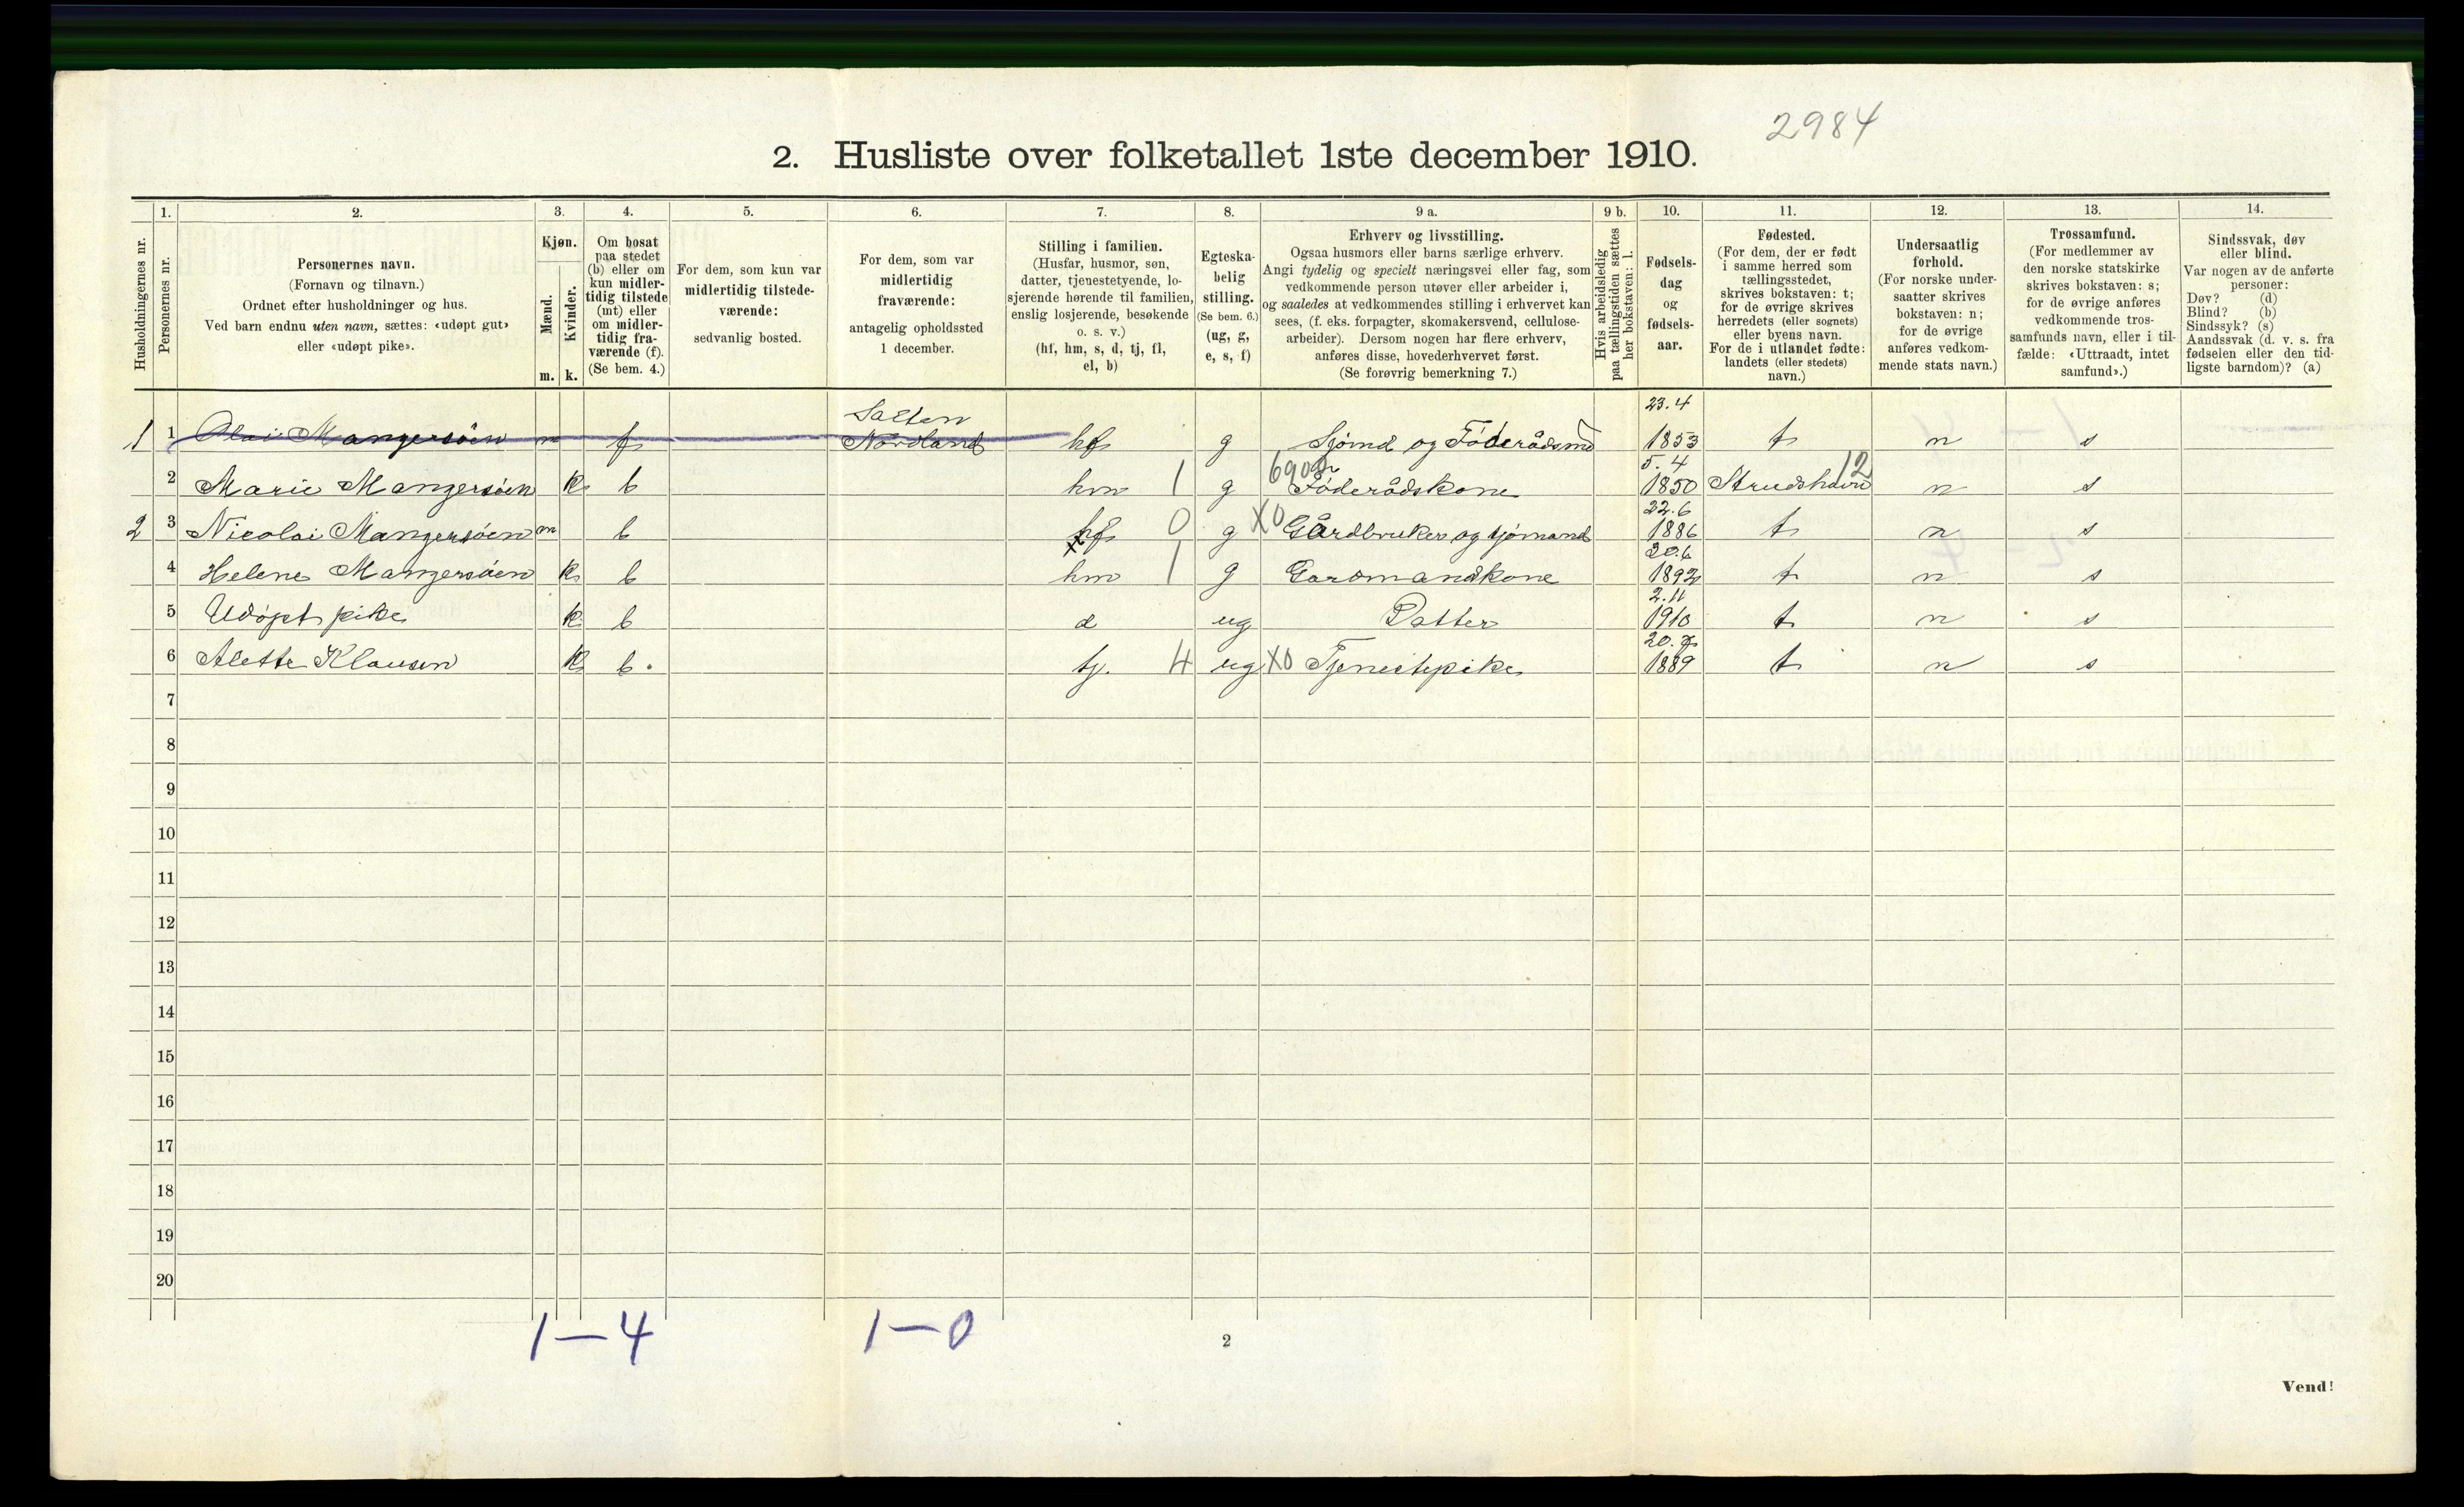 2984
2. Husliste over folketallet 1ste december 1910.
Husholdningernes nr.
1.
Personernes nr.
2.
Personernes navn.
(Fornavn og tilnavn.)
Ordnet efter husholdninger og hus.
Ved barn endnu uten navn, sættes: «udøpt gut»
eller «udøpt pike».
3.
Kjøn.
Mænd.
Kvinder.
m. k.
4.
Om bosat
paa stedet
(b) eller om
kun midler-
tidig tilstede
(mt) eller
om midler-
tidig fra-
værende (f).
(Se bem. 4.)
5.
For dem, som kun var
midlertidig tilstede-
værende:
sedvanlig bosted.
6.
For dem, som var
midlertidig
fraværende:
antagelig opholdssted
1 december.
7.
Stilling i familien.
(Husfar, husmor, søn,
datter, tjenestetyende, lo-
sjerende hørende til familien,
enslig losjerende, besøkende
o. s. v.)
(hf, hm, s, d, tj, fl,
el, b)
8.
Egteska-
belig
stilling.
(Se bem. 6.)
(ug, g,
e, s, f)
9 a.
Erhverv og livsstilling.
Ogsaa husmors eller barns særlige erhverv.
Angi tydelig og specielt næringsvei eller fag, som
vedkommende person utøver eller arbeider i,
og saaledes at vedkommendes stilling i erhvervet kan
sees, (f. eks. forpagter, skomakersvend, cellulose-
arbeider). Dersom nogen har flere erhverv,
anføres disse, hovederhvervet først.
(Se forøvrig bemerkning 7.)
9 b.
Hvis arbeidsledig
paa tællingstiden sættes
her bokstaven: l.
10.
Fødsels-
dag
og
fødsels-
aar.
11.
Fødested.
(For dem, der er født
i samme herred som
tællingsstedet,
skrives bokstaven: t;
for de øvrige skrives
herredets (eller sognets)
eller byens navn.
For de i utlandet fødte:
landets (eller stedets)
navn.)
12.
Undersaatlig
forhold.
(For norske under-
saatter skrives
bokstaven: n;
for de øvrige
anføres vedkom-
mende stats navn.)
13.
Trossamfund.
(For medlemmer av
den norske statskirke
skrives bokstaven: s;
for de øvrige anføres
vedkommende tros-
samfunds navn, eller i til-
fælde: «Uttraadt, intet
samfund».)
14.
Sindssvak, døv
eller blind.
Var nogen av de anførte
personer:
Døv? (d)
Blind? (b)
Sindssyk? (s)
Aandssvak (d. v. s. fra
fødselen eller den tid-
ligste barndom)? (a)
Salten 23.4
1 1 Olai Mangersöen m f Nordland hf g Sjömd og Föderådsmd 1853 t n s
5.4
2 Marie Mangersöen k b hm 1 g 6900 Föderådskone 1850 12 n s
22.6
2 3 Nicolai Mangersöen m b hf 0 g X0 Gårdbruker og sjömand 1886 t n s
20.6
4 Helene Mangersöen k b x hm 1 g Gardmandkone 1892 t n s
2.11
5 Udöpt pike k b d ug Datter 1910 t n s
20.7
6 Alette Klausen k b. tj. 4 ug X0 Tjenestepike 1889 t n s
7
8
9
10
11
12
13
14
15
16
17
18
19
20
1—4 1—0
2
Vend!